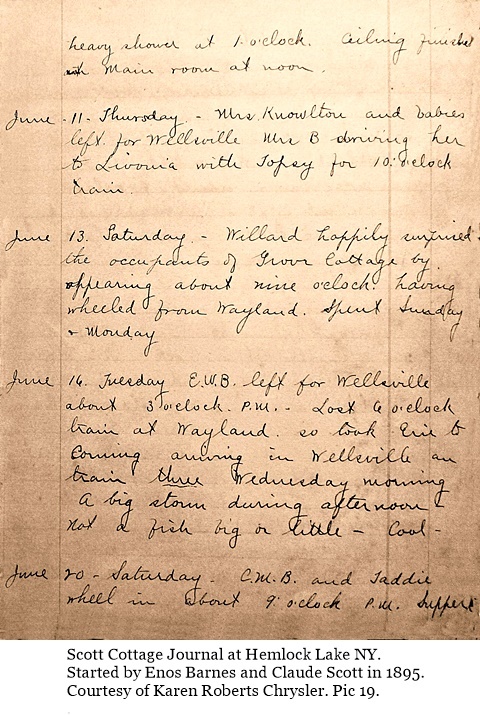 heavy shower at 1 o'clock. Ceiling finished
Main room at noon.
June 11. Thursday - Mrs. Knowlton and babies
left for Wellsville Mrs B driving her
to Livonia with Topsy for 10 o'clock
train.
June 13. Saturday - Willard happily surprised
the occupants of Grove Cottage by
appearing about nine o'clock. having
wheeled from Wayland. Spent Sunday
& Monday
June 16. Tuesday E.W.B. left for Wellsville
about 3 o'clock. P.M. - Lost 6 o'clock
train at Wayland. so took Erie to
Corning arriving in Wellsville on
train three Wednesday morning
A big storm during afternoon -
not a fish big or little - Cool -
June 20 - Saturday - C.M.B. and Taddie
wheel in about 9 o'clock P.M. Supper
Scott Cottage Journal at Hemlock Lake NY.
Started by Enos Barnes and Claude Scott in 1895.
Courtesy of Karen Roberts Chrysler. Pic 19.